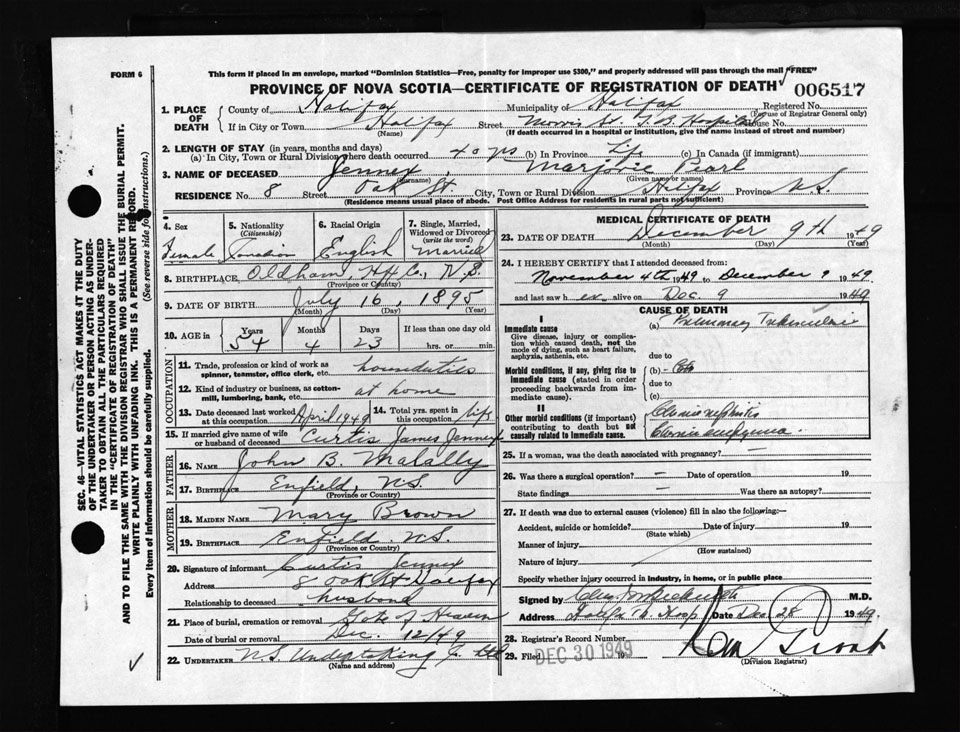 FORM 6
This form if placed in an envelope, marked "Dominion Statistics—Free, penalty for improper use $300," and properly addressed will pass through the mail "FREE"
PROVINCE OF NOVA SCOTIA—CERTIFICATE OF REGISTRATION OF DEATH
006517
1. PLACE OF DEATH County of Halifax Municipality of Halifax Registered No.
(For use of Registrar General only)
If in City or Town Halifax Street Morris St. T.B. Hospital House No.
(Name) (If death occurred in a hospital or institution, give the name instead of street and number)
2. LENGTH OF STAY (in years, months and days)
(a) In City, Town or Rural Division where death occurred 40 yrs (b) In Province Life (c) In Canada (if immigrant)
3. NAME OF DECEASED Jennex, Marjorie Pearl
(Surname) (Given name or names)
RESIDENCE No. 8 Street Oak St. City, Town or Rural Division Halifax Province N.S.
(Residence means usual place of abode. Post Office Address for residents in rural parts not sufficient)
4. Sex Female
5. Nationality (Citizenship) Canadian
6. Racial Origin English
7. Single, Married, Widowed or Divorced (write the word) Married
8. BIRTHPLACE Oldham, Hfx Co., N.S.
(Province or Country)
9. DATE OF BIRTH July 16, 1895
(Month) (Day) (Year)
10. AGE in Years Months Days If less than one day old
54 4 23 hrs. or min.
OCCUPATION
11. Trade, profession or kind of work as spinner, teamster, office clerk, etc.
12. Kind of industry or business, as cotton-mill, lumbering, bank, etc. at home
13. Date deceased last worked at this occupation April 1949
14. Total yrs. spent in this occupation life
15. If married give name of wife or husband of deceased Curtis James Jennex
FATHER
16. NAME John B. Malally
17. BIRTHPLACE Enfield, N.S.
(Province or Country)
MOTHER
18. MAIDEN NAME Mary Brown
19. BIRTHPLACE Enfield N.S.
(Province or Country)
20. Signature of informant Curtis Jennex
Address 8 Oak St Halifax
Relationship to deceased husband
21. Place of burial, cremation or removal Gate of Heaven
Date of burial or removal Dec. 12/49
22. UNDERTAKER N.S. Undertaking Co. Ltd
(Name and address)
MEDICAL CERTIFICATE OF DEATH
23. DATE OF DEATH December 9th 1949
(Month) (Day) (Year)
24. I HEREBY CERTIFY that I attended deceased from:
November 4th 1949 to December 9 1949
and last saw her alive on Dec. 9 1949
CAUSE OF DEATH
I
Immediate cause
Give disease, injury or complication which caused death, not the mode of dying, such as heart failure, asphyxia, asthenia, etc.
(a) Pulmonary Tuberculosis
due to
Morbid conditions, if any, giving rise to immediate cause (stated in order proceeding backwards from immediate cause).
(b)
due to
(c)
II
Other morbid conditions (if important) contributing to death but not causally related to immediate cause.
Chronic nephritis
Chronic
25. If a woman, was the death associated with pregnancy? —
26. Was there a surgical operation? — Date of operation 19
State findings — Was there an autopsy?
27. If death was due to external causes (violence) fill in also the following:—
Accident, suicide or homicide? Date of injury 19
(State which)
Manner of injury
(How sustained)
Nature of injury
Specify whether injury occurred in industry, in home, or in public place
Signed by M.D.
Address Halifax T.B. Hosp. Date Dec. 28 1949.
28. Registrar's Record Number
29. Filed DEC 30 1949 19
(Division Registrar)
SEC. 46—VITAL STATISTICS ACT MAKES IT THE DUTY
OF THE UNDERTAKER OR PERSON ACTING AS UNDER-
TAKER TO OBTAIN ALL THE PARTICULARS REQUIRED
IN THE "CERTIFICATE OF REGISTRATION OF DEATH"
AND TO FILE THE SAME WITH THE DIVISION REGISTRAR WHO SHALL ISSUE THE BURIAL PERMIT.
WRITE PLAINLY WITH UNFADING INK. THIS IS A PERMANENT RECORD.
Every item of information should be carefully supplied. (See reverse side for instructions.)